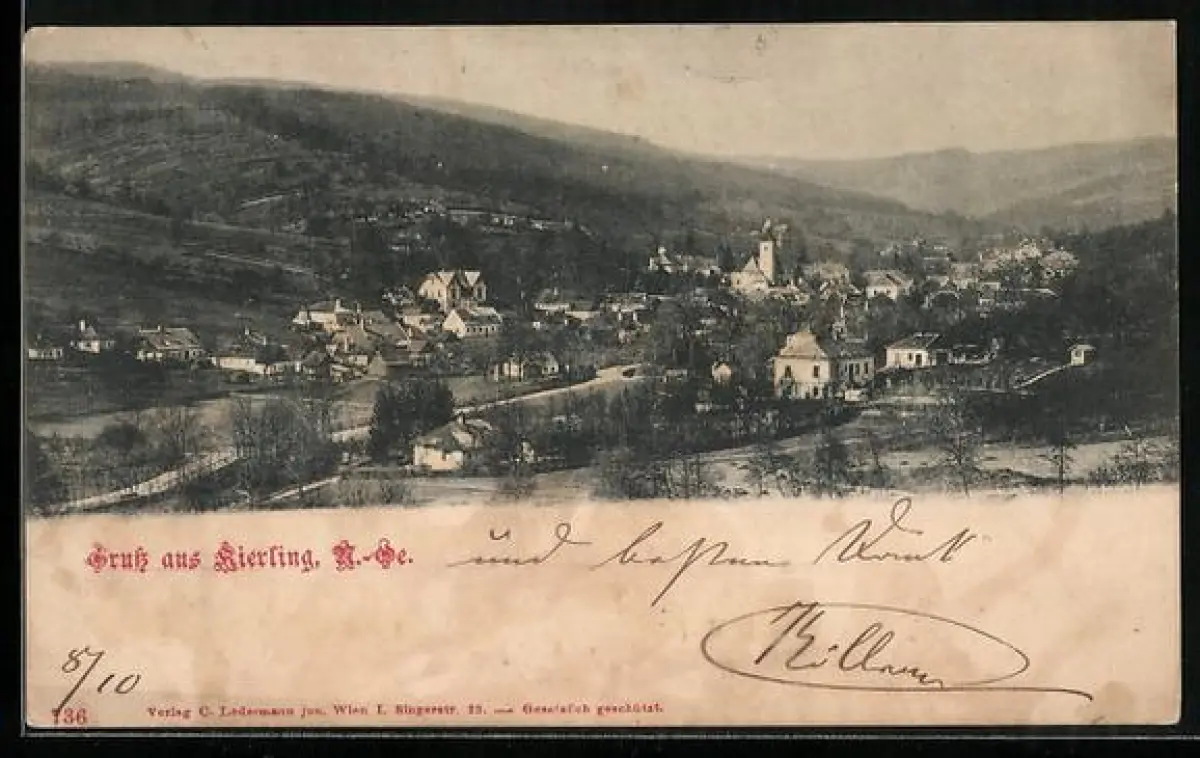 Gruß aus Kierling, N.-Oe. und besten Dank
Killan
8/10
136 Verlag C. Ledermann jun. Wien I. Singerstr. 12. — Gesetzlich geschützt.